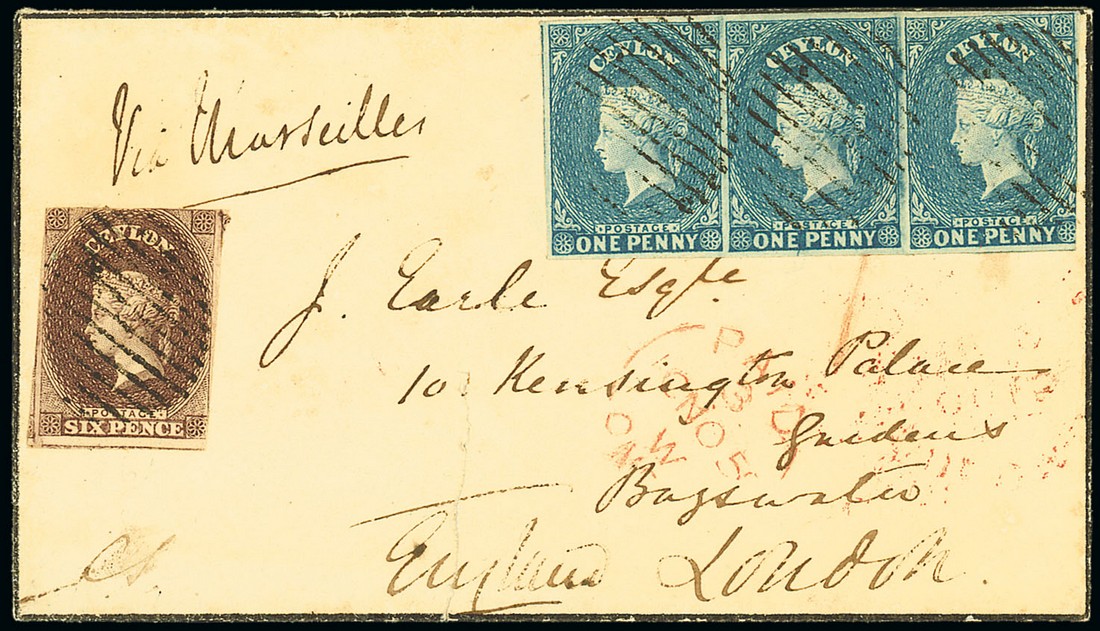 CEYLON CEYLON CEYLON
POSTAGE POSTAGE POSTAGE
ONE PENNY ONE PENNY ONE PENNY
Via Marseilles
CEYLON
POSTAGE
SIX PENCE
J. Earle Esqre
10 Kensington Palace
Gardens
Bayswater
England London.
PAID